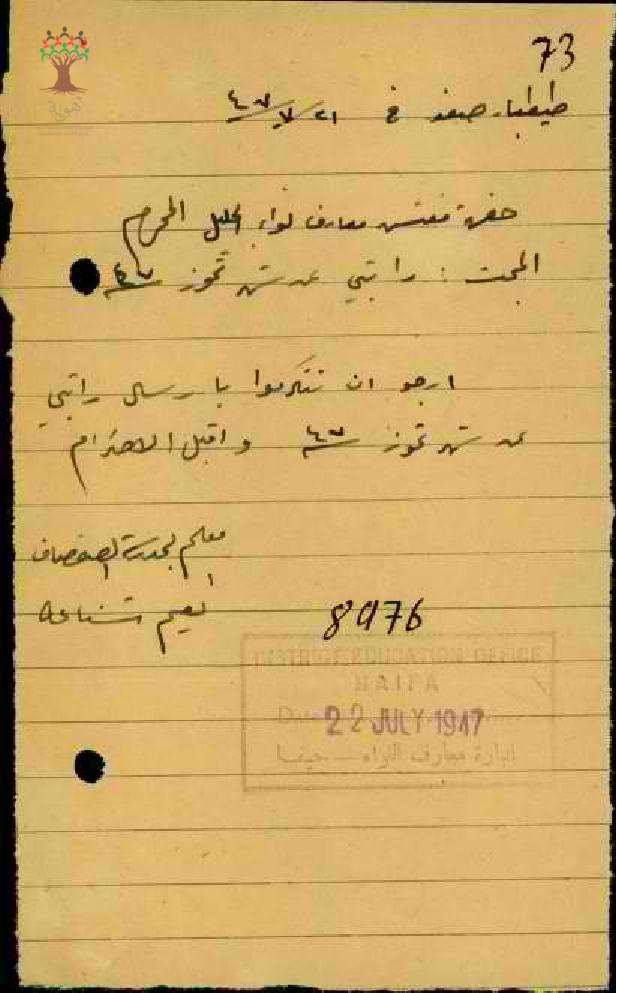 73
طيطبا - صفد في ٢١/٧/٤٧
حضرة مفتش معارف لواء الجليل المحترم
البحث : راتبي عن شهر تموز ٤٧
ارجو ان تتكرموا بارسال راتبي
عن شهر تموز ٤٧ واقبل الاحترام
معلم بمدرسة الصفصاف
نعيم
8976
DISTRICT EDUCATION OFFICE
HAIFA
Date 22 JULY 1947
ادارة معارف اللواء - حيفا
هوية